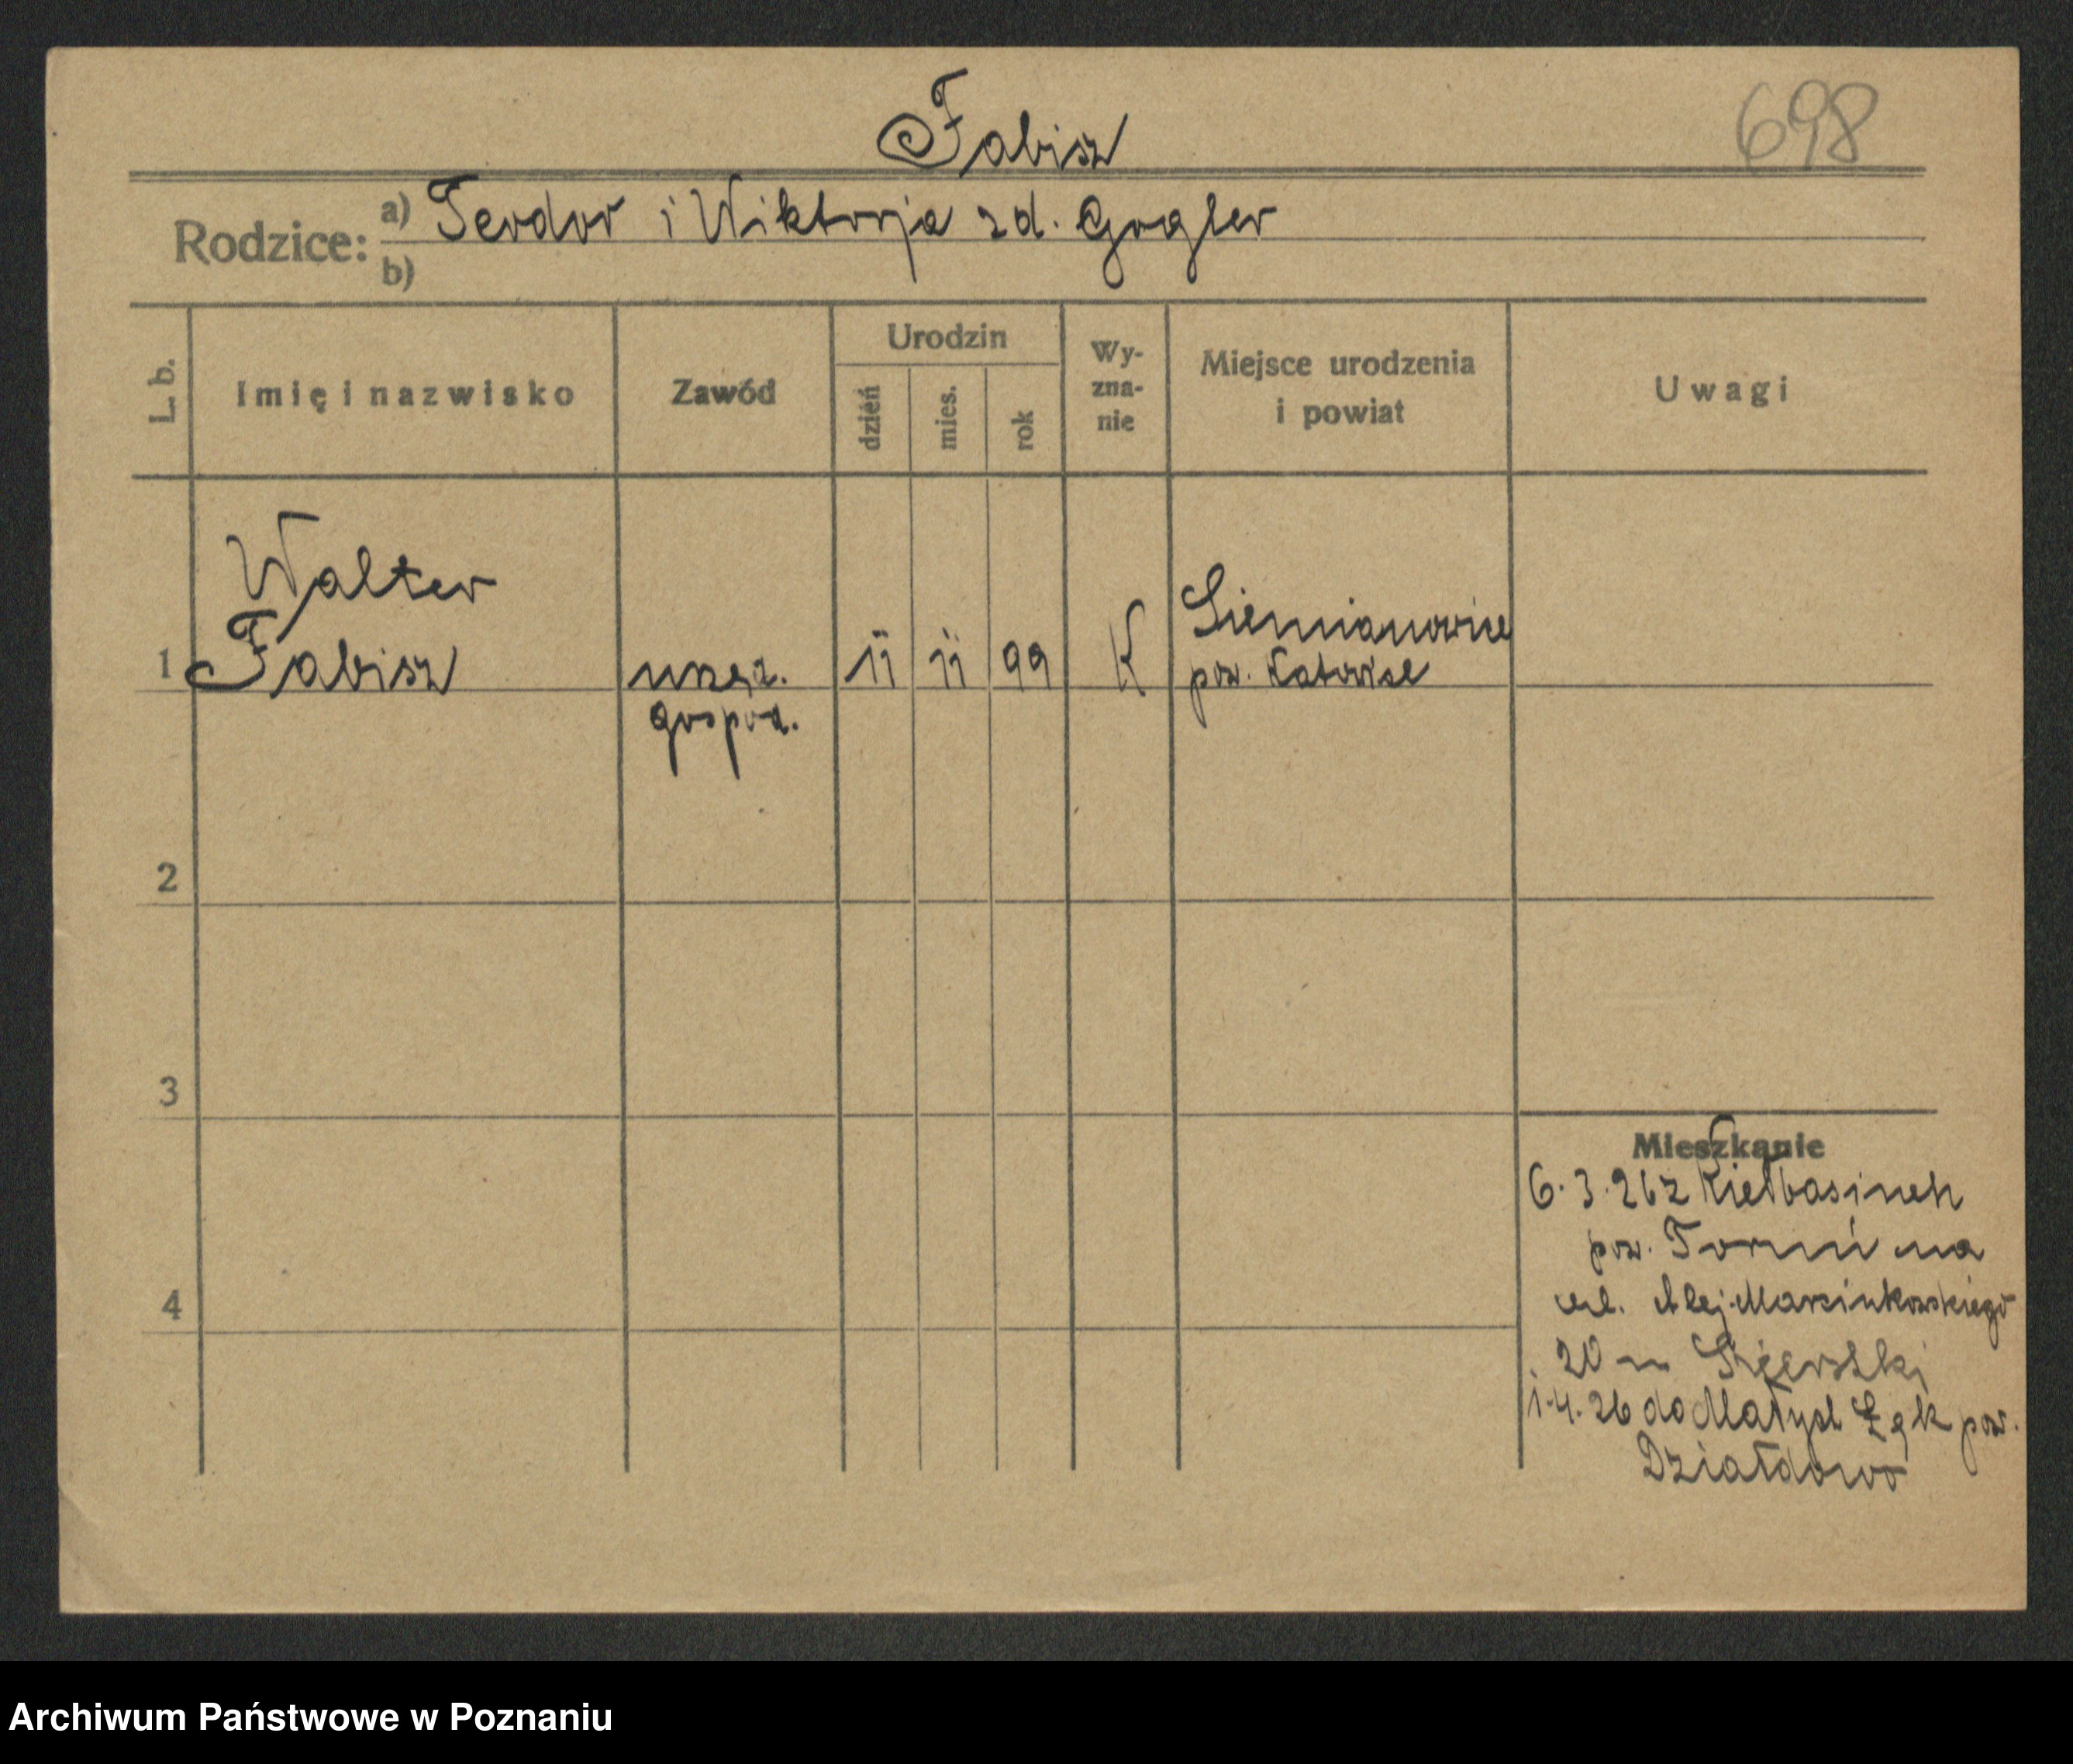 Fabisz
698
Rodzice: a) Teodor i Wiktorja zd. Gogler
b)
L. b.
Imię i nazwisko
Zawód
Urodzin
dzień
mies.
rok
Wy-
zna-
nie
Miejsce urodzenia
i powiat
Uwagi
Walter
1 Fabisz
urzęd.
gospod.
11 11 99
K
Siemianowice
pow. Katowice
2
3
4
Mieszkanie
6.3.26 z Kiełbasinek
pow. Toruń na
ul. Alej. Marcinkowskiego
20
1.4.26 do Małych Łęk pow.
Działdowo
Archiwum Państwowe w Poznaniu